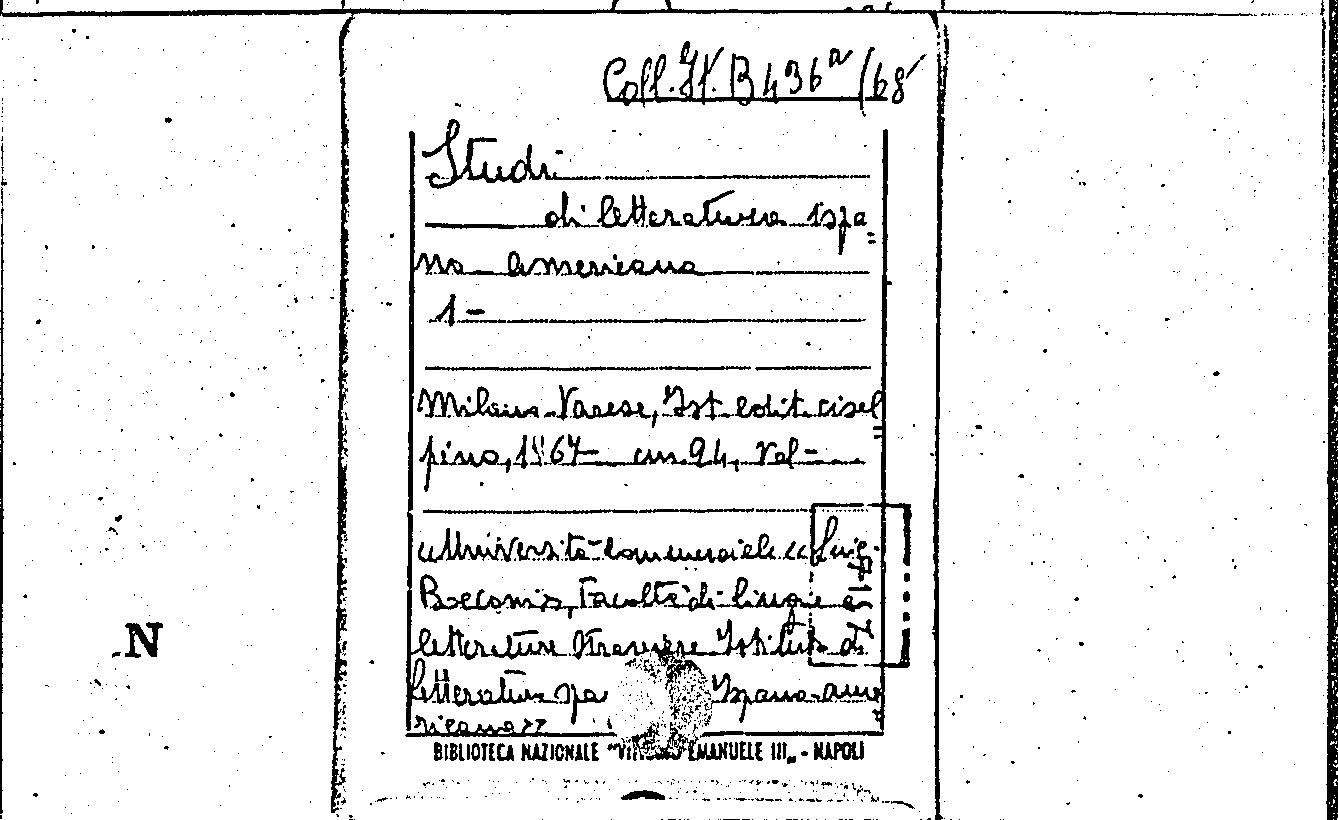 Coll. It. B 436ª/68
Studi
di letteratura ispa=
no americana
1-
Milano-Varese, Ist. edit. cisal=
pino, 1967- cm. 24, vol-
«Università commerciale «Luigi
Bocconi», Facoltà di lingue e
letterature straniere Istituto di
letteratura spa Ispano-ame=
ricana»
N
BIBLIOTECA NAZIONALE "VITTORIO EMANUELE III„ - NAPOLI